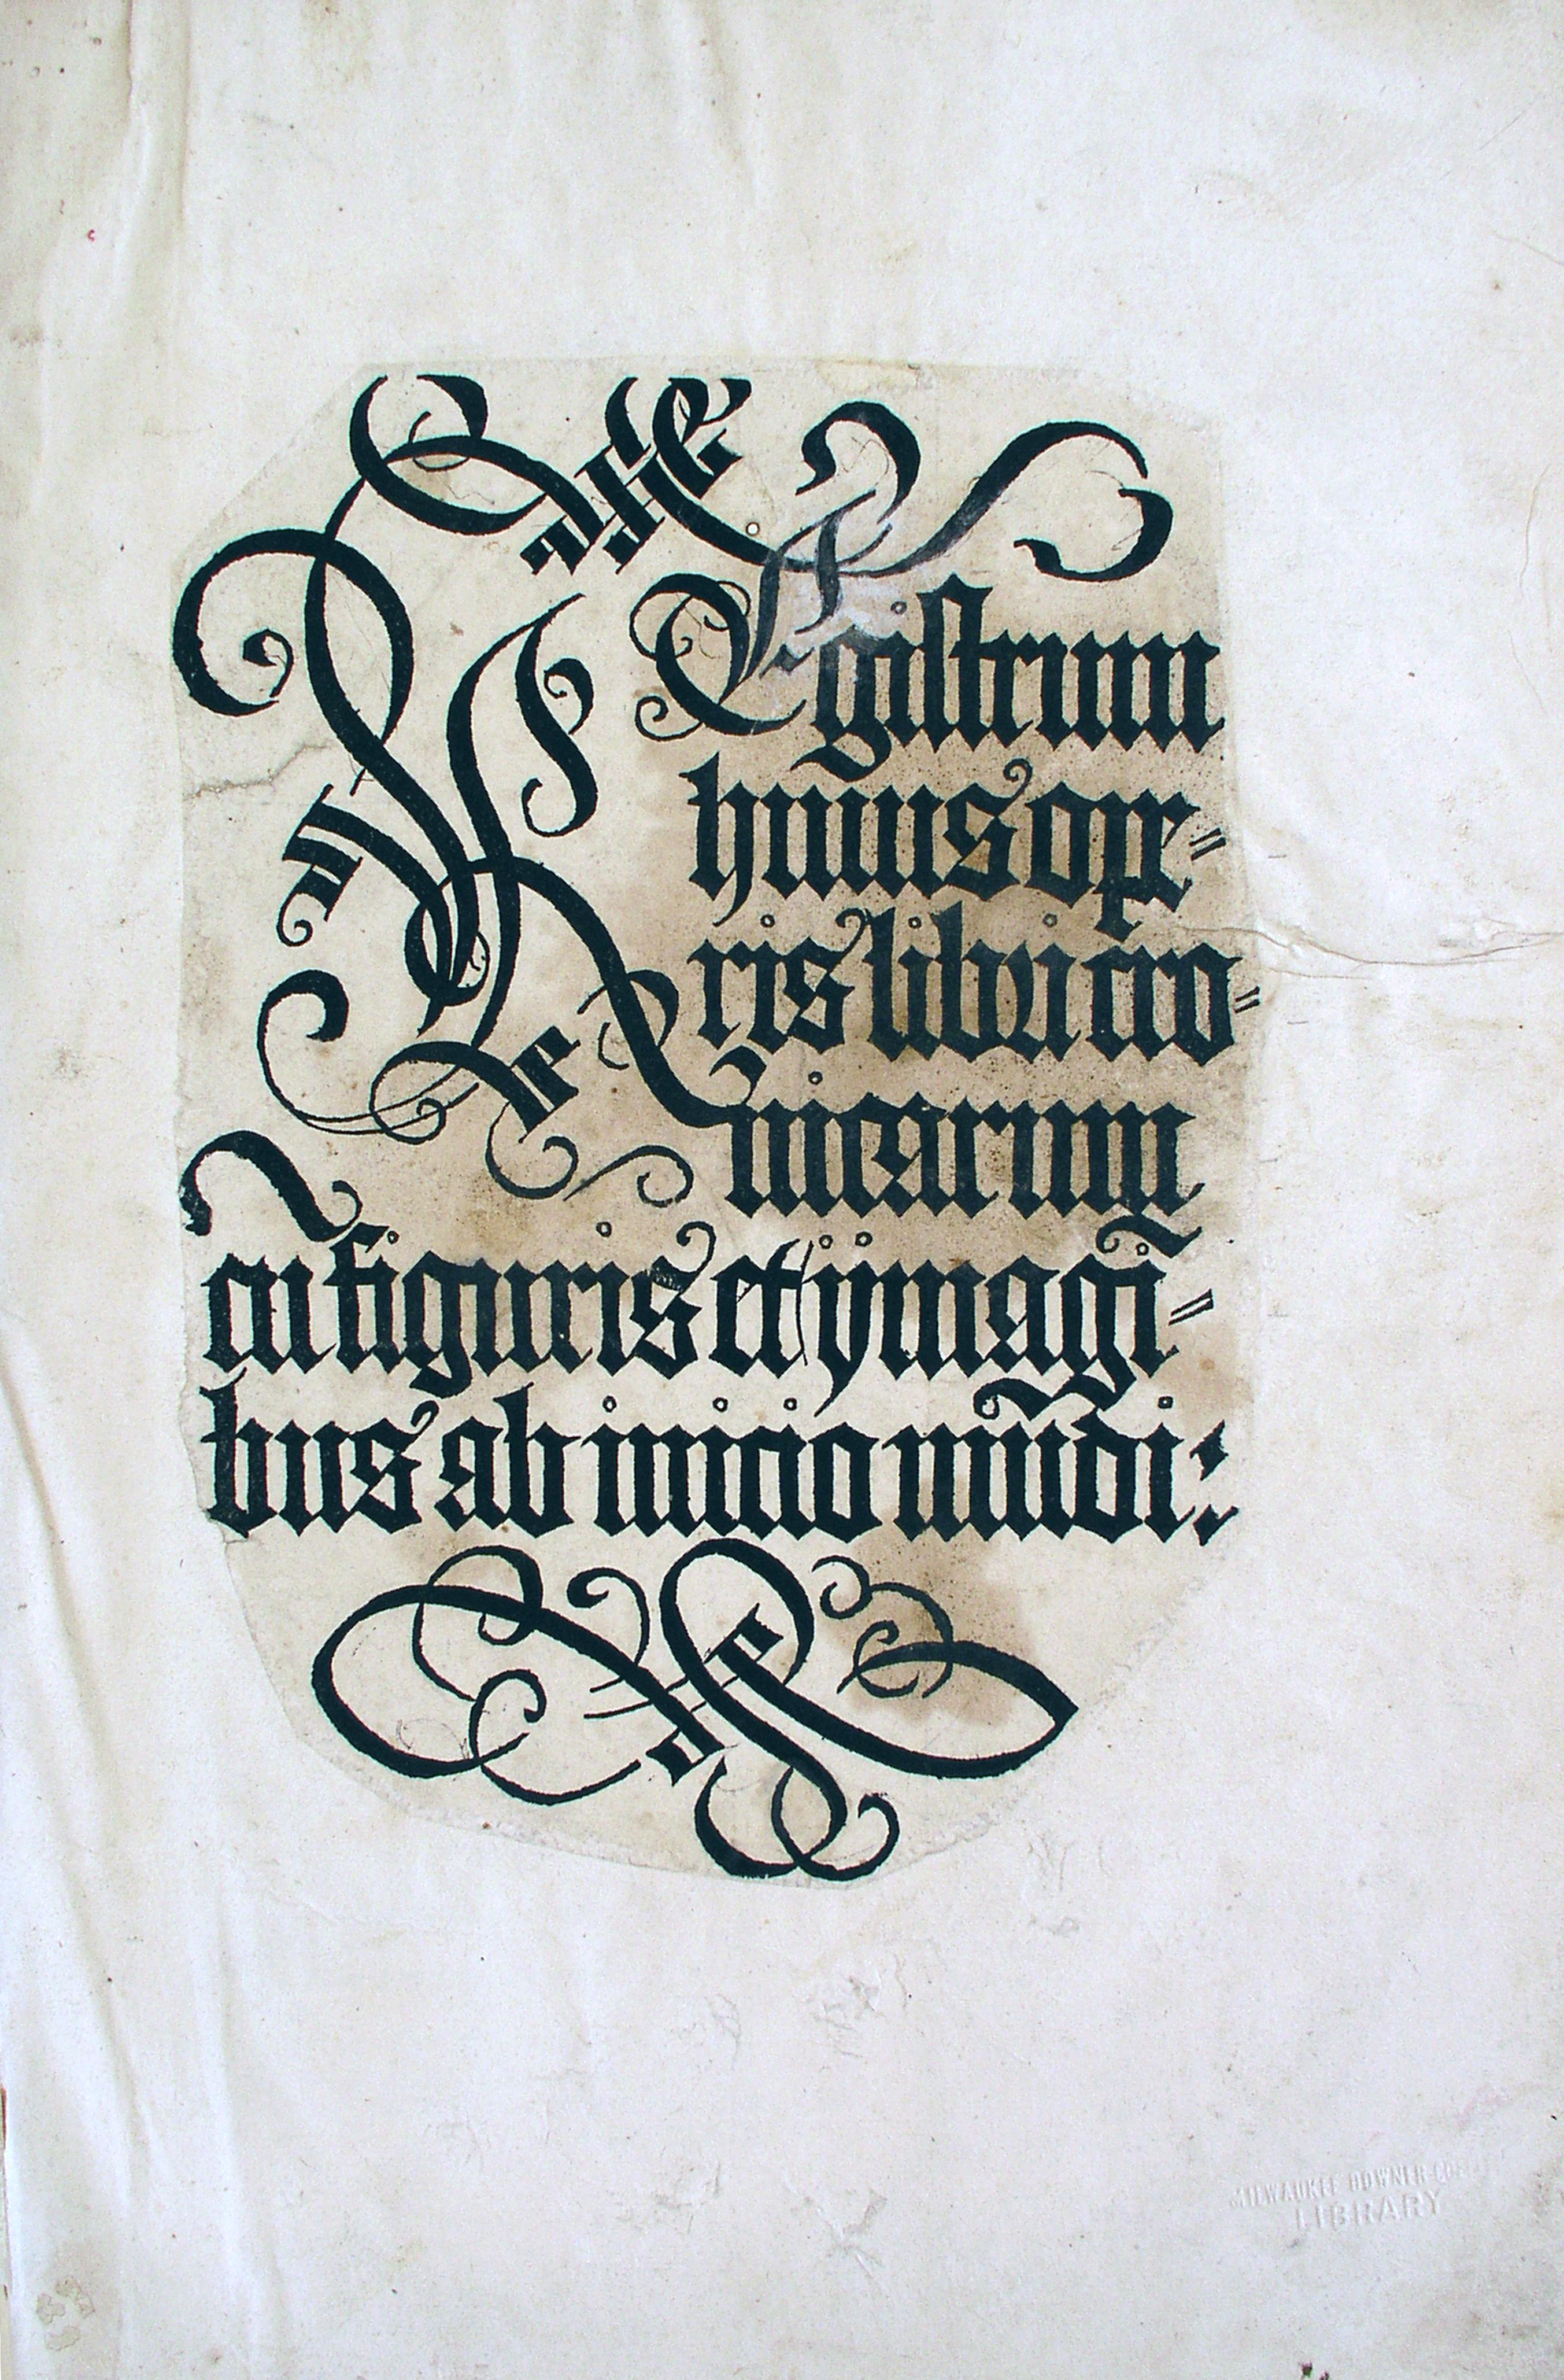 REgistrum
huius ope=
ris libri cro=
nicarum
cū figuris et ymagī=
bus ab inicio mūdi:
MILWAUKEE DOWNER-COLLEGE
LIBRARY